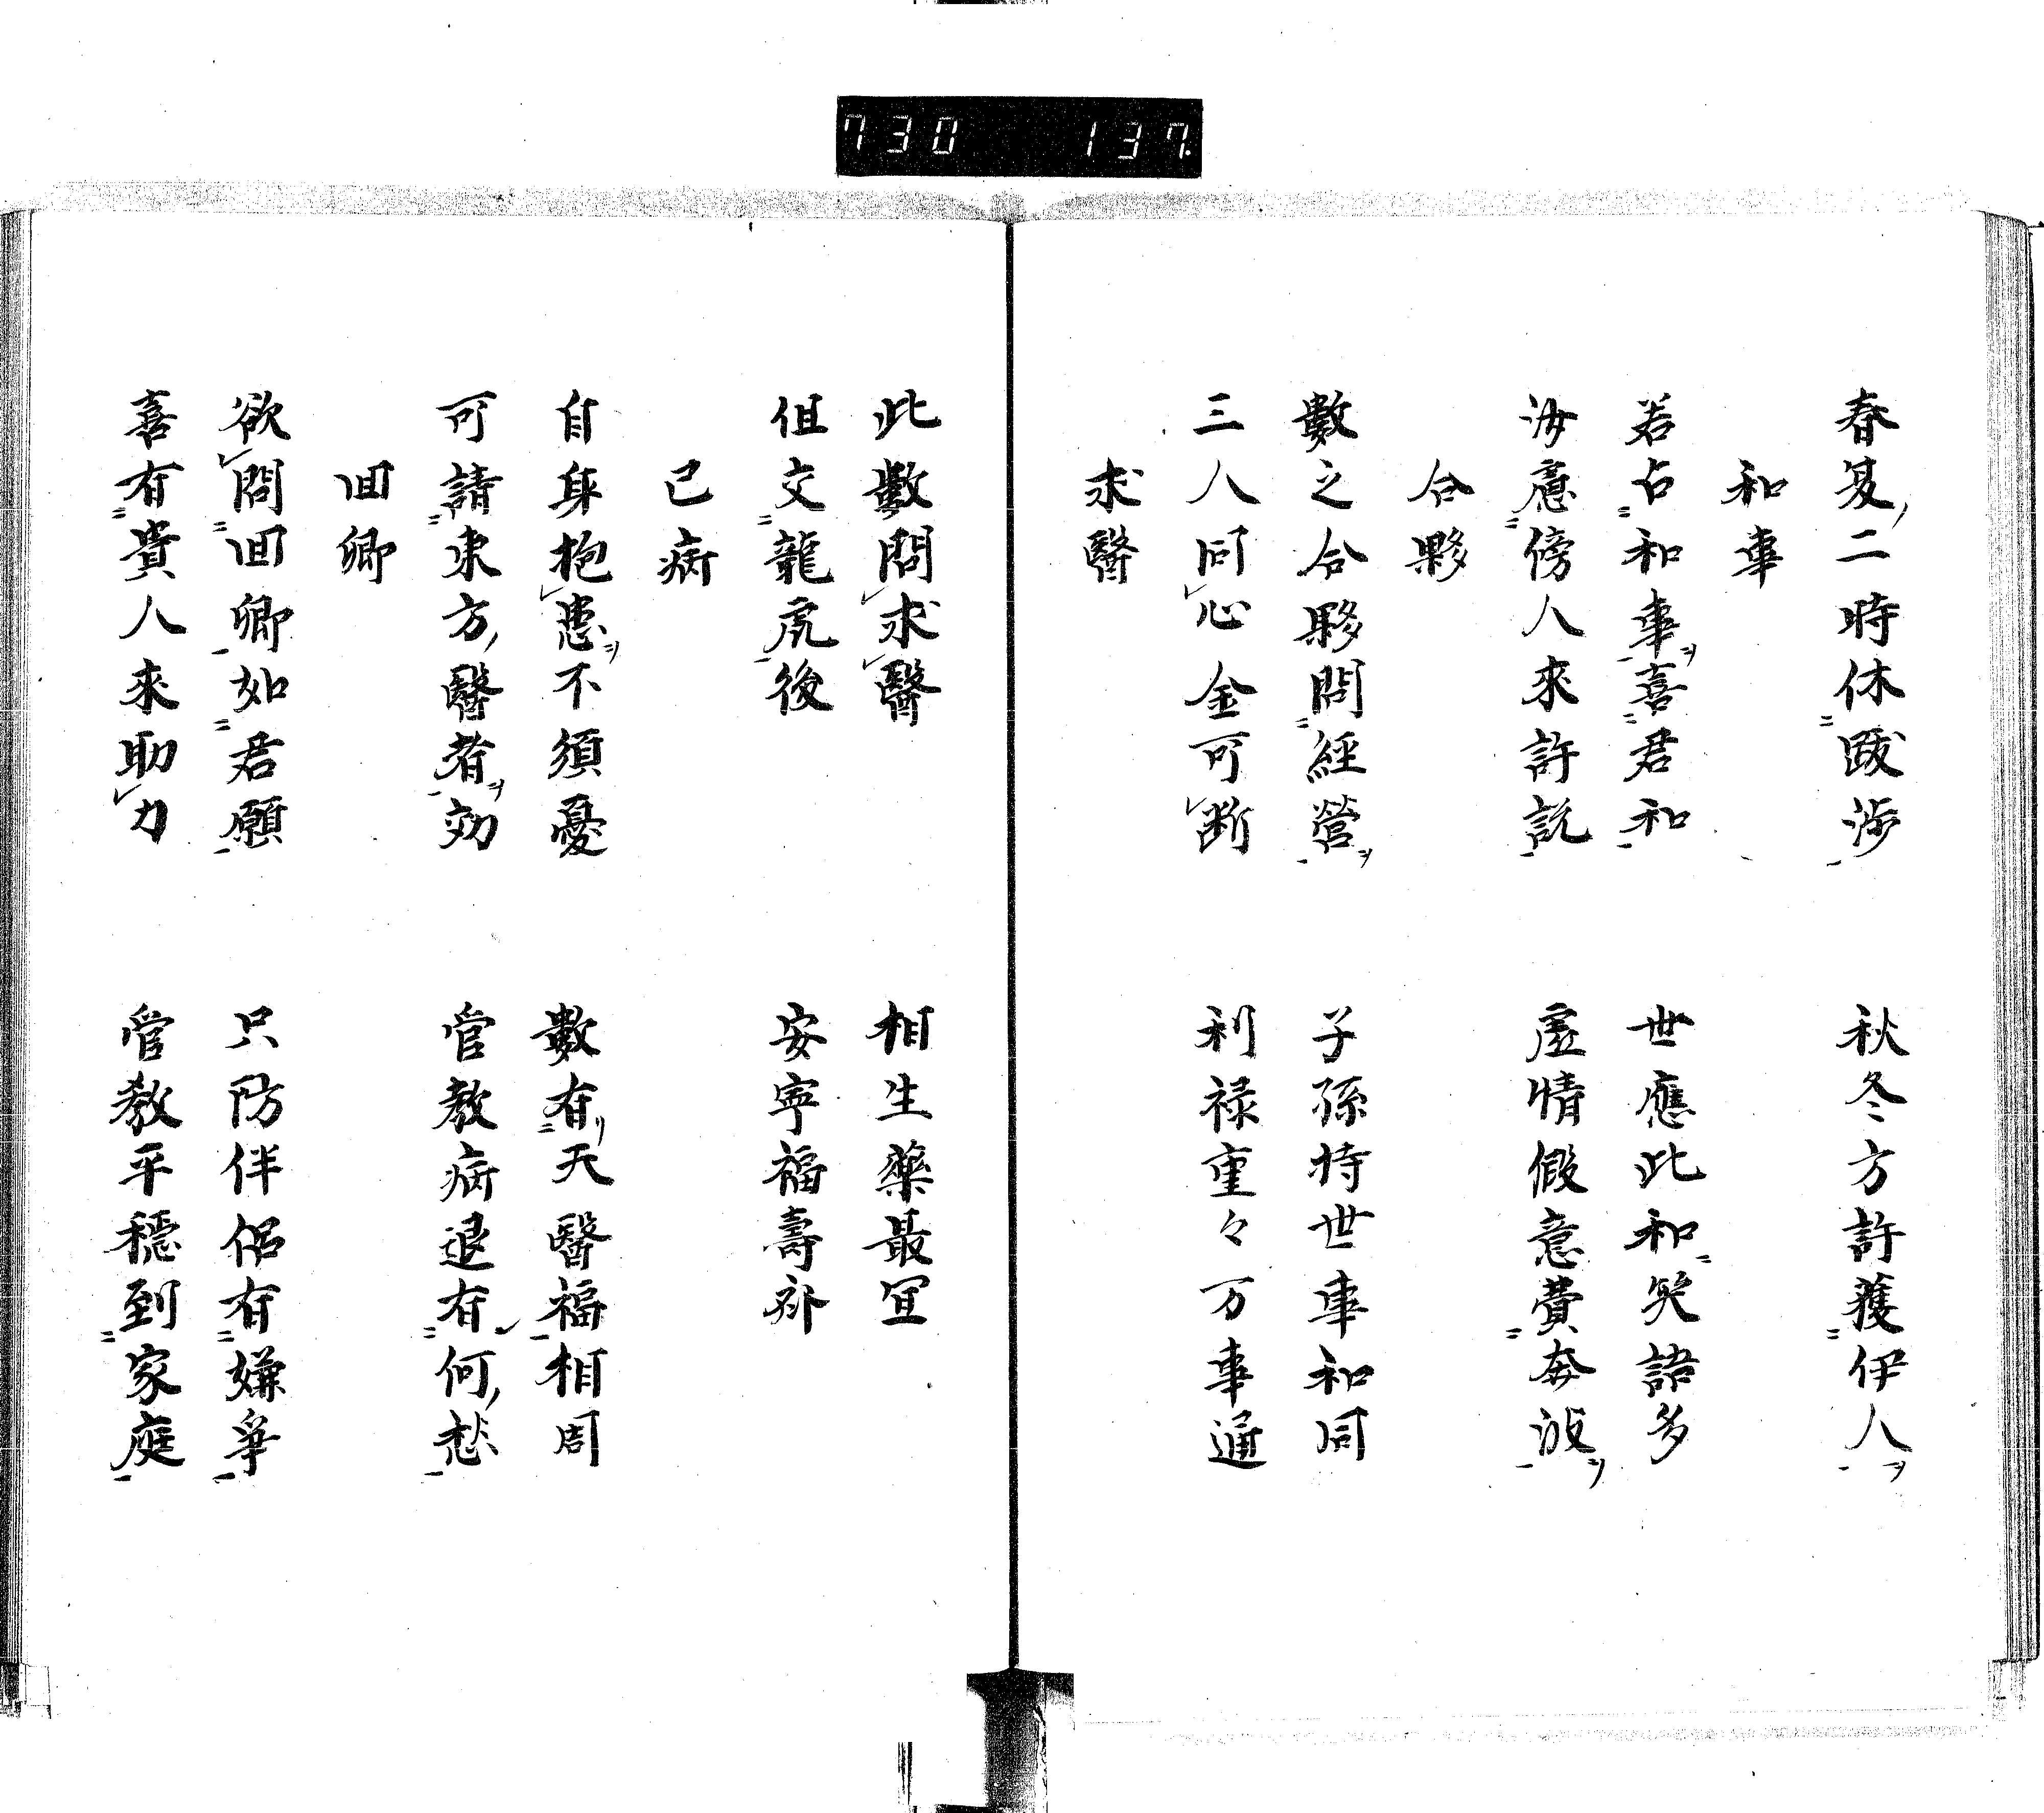 730 137
春夏二時休跋渉 秋冬方許獲伊人
和事
若占和事喜君和 世應此和笑語多
汝應傍人來許説 虚情假意費奔波
合夥
數之合夥問經營 子孫持世事和同
三人同心金可断 利禄重々万事通
求醫
此數問求醫 相生藥最宜
但交龍虎後 安寧福壽齐
己病
自身抱患不須憂 數有天醫福相周
可請東方醫者効 管教病退有何愁
回鄉
欲問回鄉如君願 只防伴侶有嫌爭
喜有貴人來助力 管教平穩到家庭